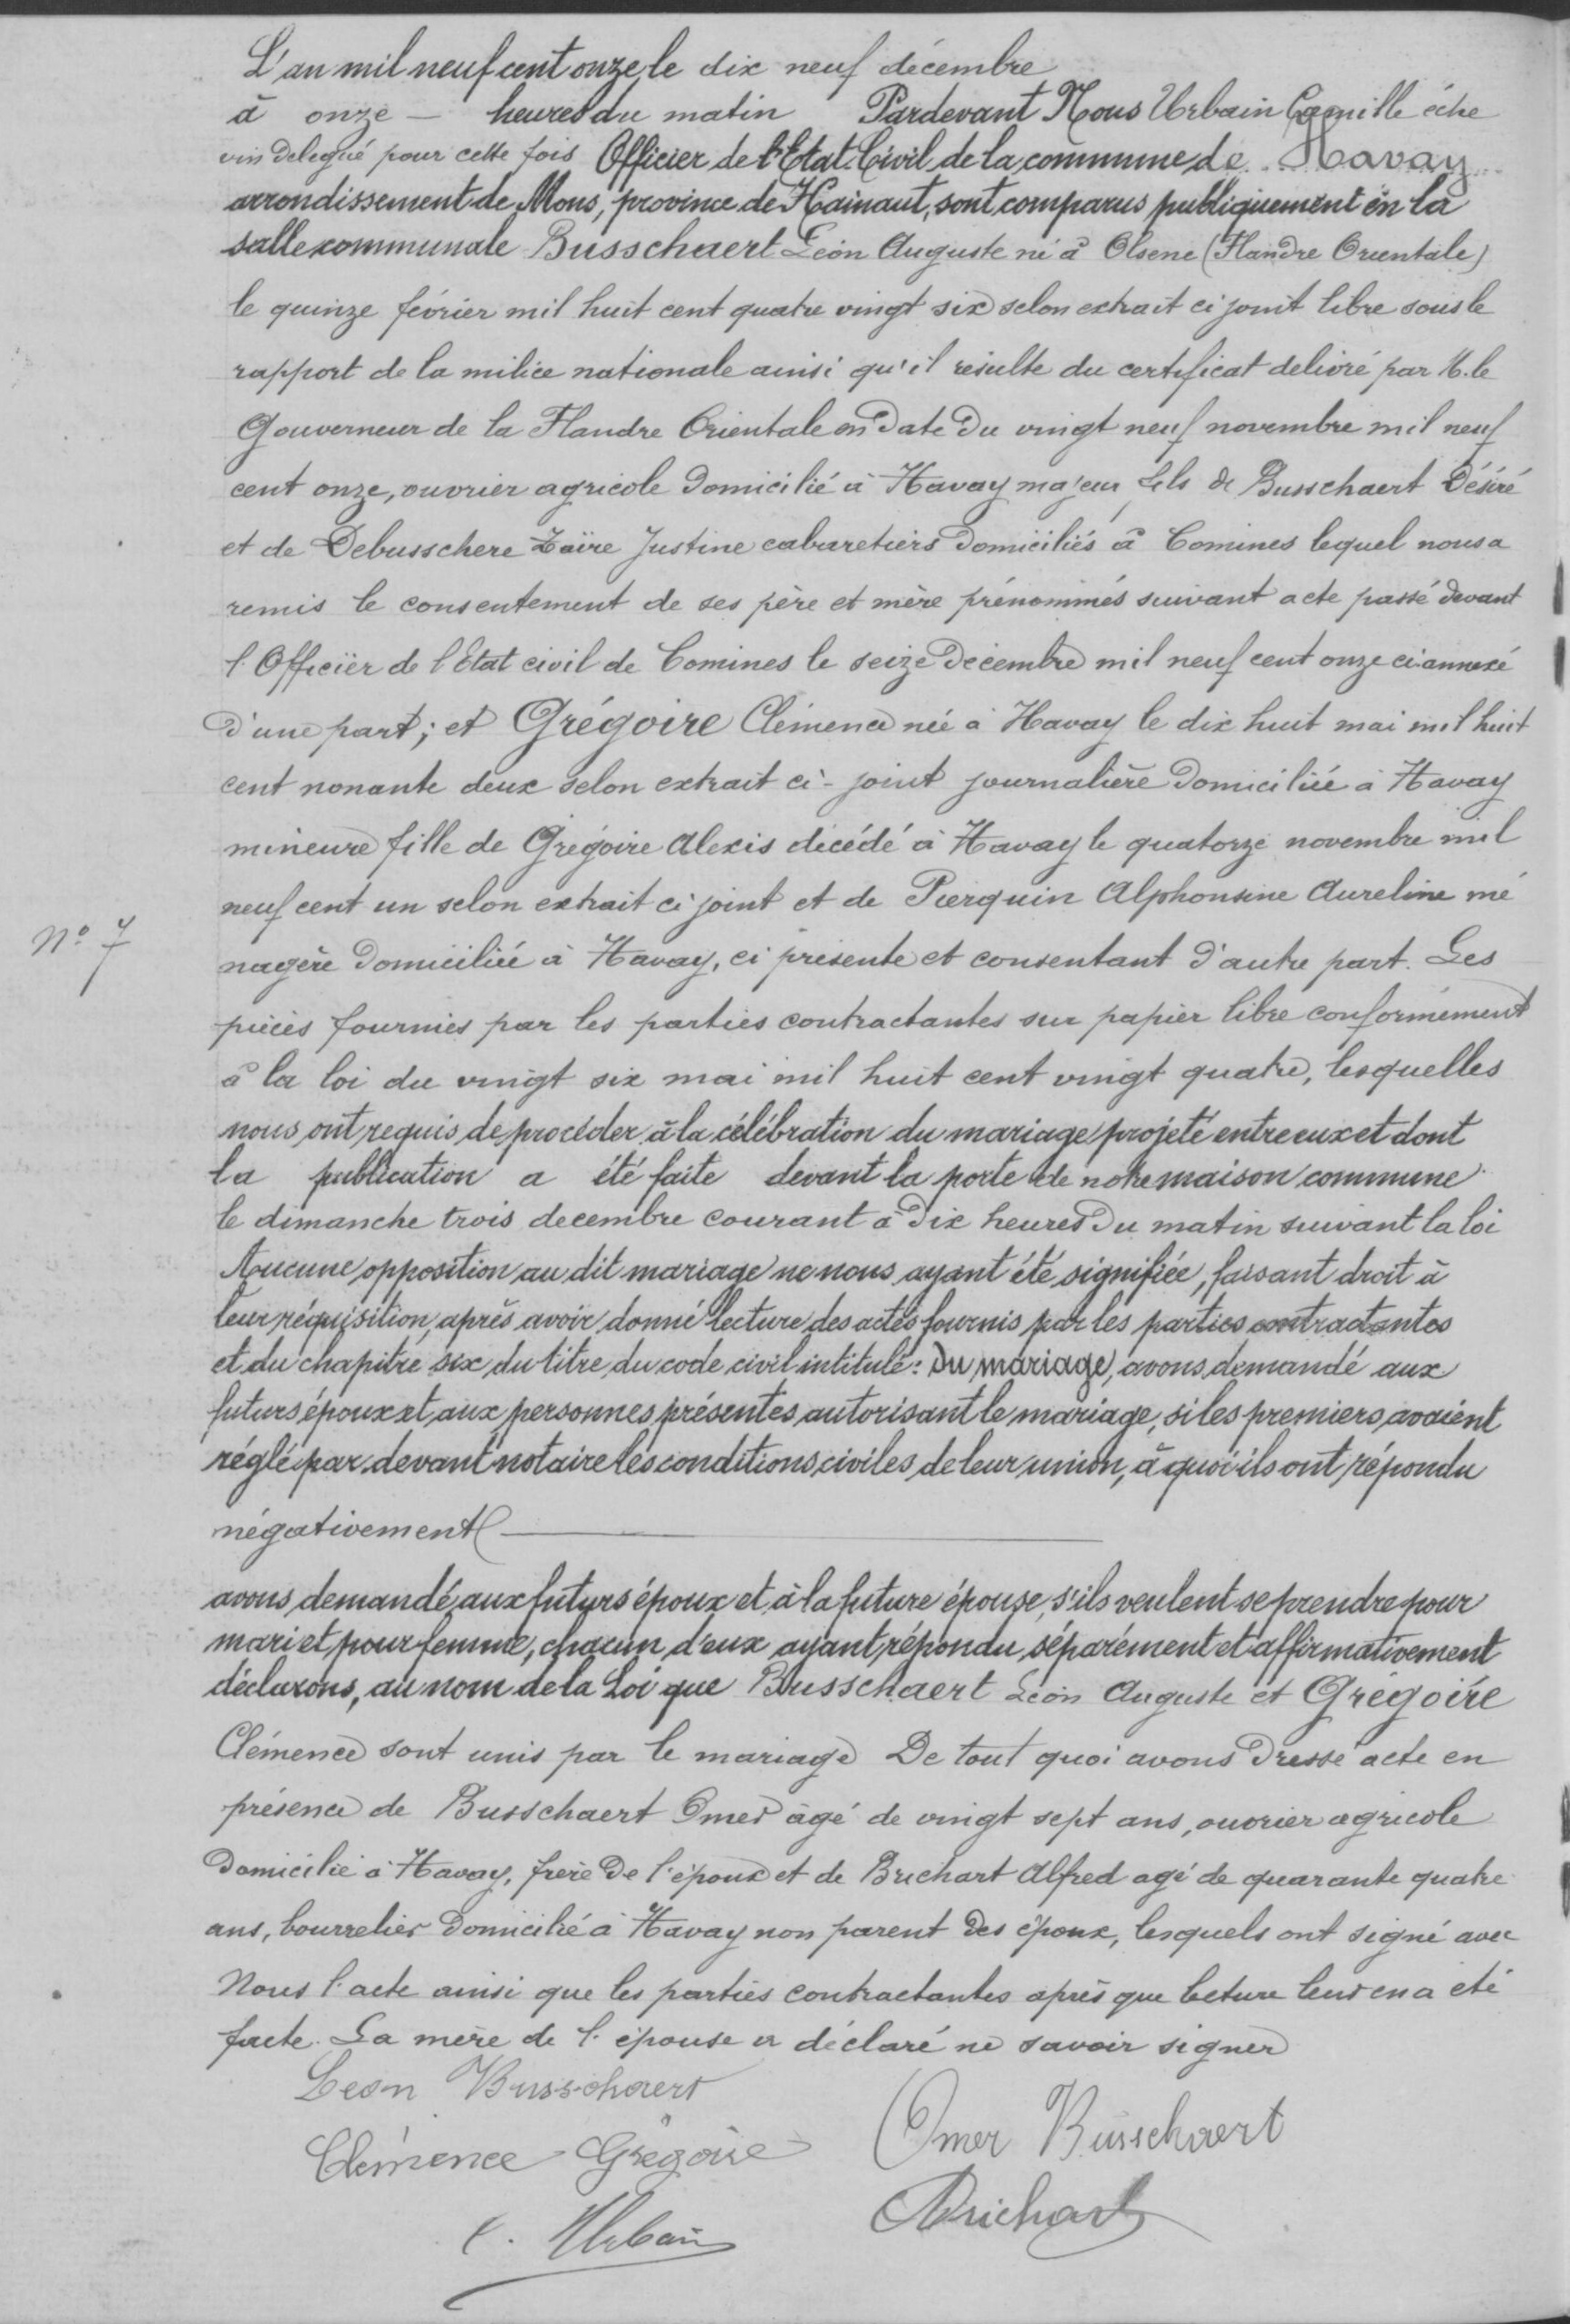 L'an mil neuf cent onze, le dix neuf décembre
à onze — heures du matin Pardevant Nous Urbain Camille éche
vin delegué pour cette fois Officier de l'Etat-Civil de la commune de Havay
arrondissement de Mons, province de Hainaut, sont comparus publiquement en la
salle communale Busschaert Léon Auguste né à Olsene (Flandre Orientale)
le quinze février mil huit cent quatre vingt six selon extrait ci joint libre sous le
rapport de la milice nationale ainsi qu'il résulte du certificat delivré par M. le
Gouverneur de la Flandre Orientale en date du vingt neuf novembre mil neuf
cent onze, ouvrier agricole domicilié à Havay majeur, fils de Busschaert Désiré
et de Debusschere Zaïre Justine cabaretiers domiciliés à Comines lequel nous a
remis le consentement de ses père et mère prénommés suivant acte passé devant
l'Officier de l'Etat civil de Comines le seize décembre mil neuf cent onze ci-annexé
d'une part; et Grégoire Clémence née à Havay le dix huit mai mil huit
cent nonante deux selon extrait ci-joint journalière domiciliée à Havay
mineure fille de Grégoire Alexis décédé à Havay le quatorze novembre mil
neuf cent un selon extrait ci joint et de Pierquin Alphonsine Aureline mé
N° 7
nagère domiciliée à Havay, ci présente et consentant d'autre part. Les
pièces fournies par les parties contractantes sur papier libre conformément
à la loi du vingt six mai mil huit cent vingt quatre, lesquelles
nous ont requis de procéder à la célébration du mariage projeté entre eux et dont
la publication a été faite devant la porte de notre maison commune
le dimanche trois decembre courant à dix heures du matin suivant la loi
Aucune opposition au dit mariage ne nous ayant été signifiée, faisant droit à
leur réquisition, après avoir donné lecture des actes fournis par les parties contractantes
et du chapitre six du titre du code civil intitulé: Du mariage, avons demandé aux
futurs époux et aux personnes présentes autorisant le mariage, si les premiers avaient
réglé par devant notaire les conditions civiles de leur union, à quoi ils ont répondu
négativement
avons demandé aux futurs époux et à la future épouse, s'ils veulent se prendre pour
mari et pour femme, chacun d'eux ayant répondu séparément et affirmativement
déclarons, au nom de la Loi que Busschaert Léon Auguste et Grégoire
Clémence sont unis par le mariage De tout quoi avons dressé acte en
présence de Busschaert Omer âgé de vingt sept ans, ouvrier agricole
domicilié à Havay, frère de l'époux et de Brichart Alfred agé de quarante quatre
ans, bourrelier domicilié à Havay non parent des époux, lesquels ont signé avec
Nous l'acte ainsi que les parties contractantes après que lecture leur en a été
faite. La mère de l'épouse a déclaré ne savoir signer
Leon Busschaert
Omer Busschaert
Clémence Grégoire
ABrichart
C. Urbain